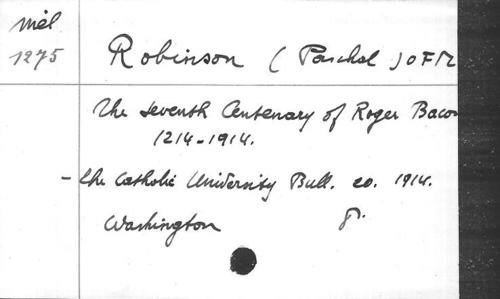 Miél
1275
Robinson (Paschal) OFM
The seventh Centenary of Roger Bacon
1214-1914.
- The Catholic University Bull. 20. 1914.
Washington 8°.